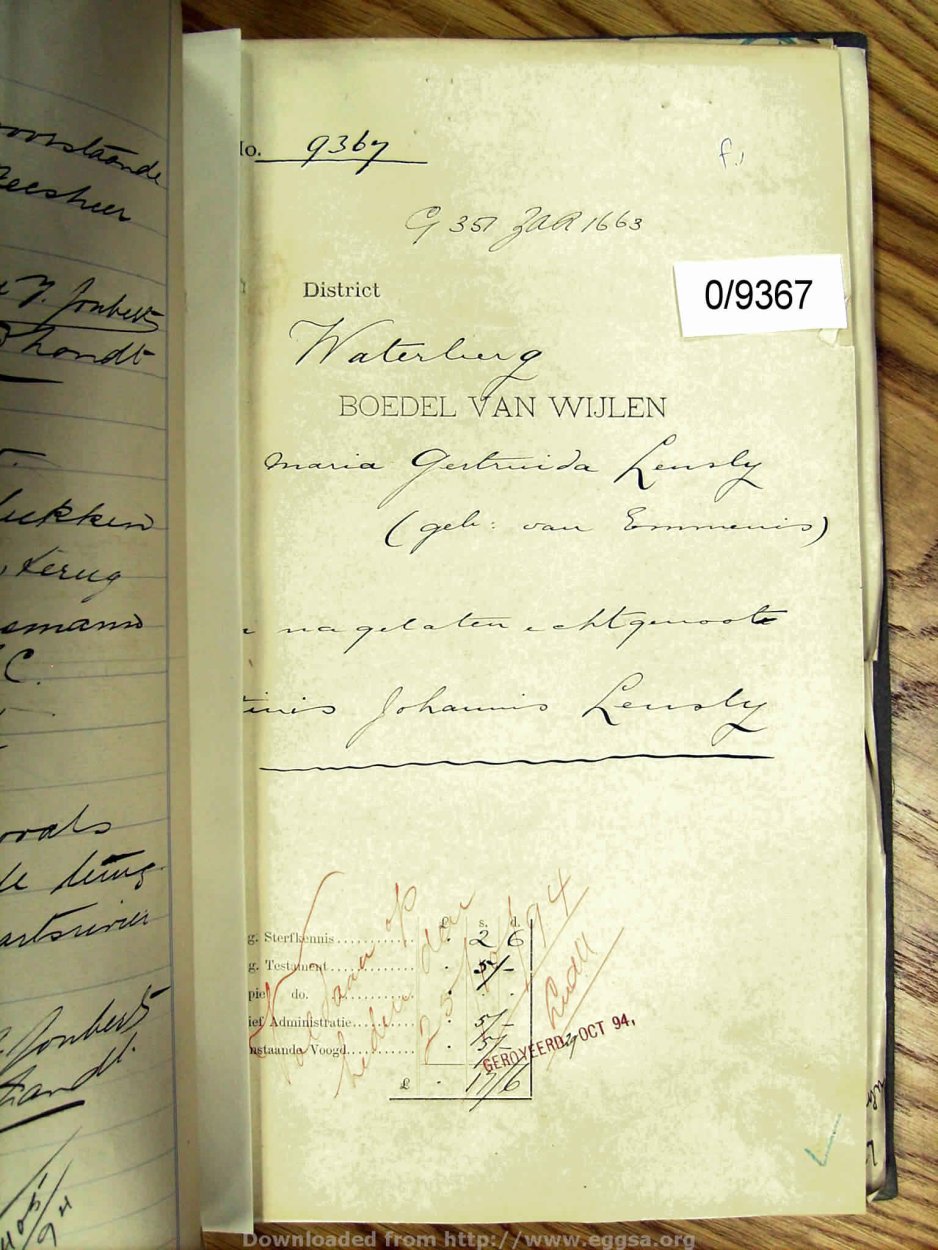 oorstaande
eesheer
Joubert
hondt
ukken
, terug
emans
C.
orals
le
artsrivier
Joubert
lo. 9367
f.1
G 351 ZAR 1663
District
0/9367
Waterberg
BOEDEL VAN WIJLEN
Maria Gertruida Leusly
(geb: van Emmenis)
nagelaten echtgenoote
Johannis Leusly
£ s. d.
g. Sterfkennis 2 6
g. Testament 5/-
pie do.
ief Administratie 5/-
nstaande Voogd 5/-
£ 17/6
Voldaan op
heden dar
25/10/94
GEROYEERD OCT 94,
Downloaded from http://www.eggsa.org